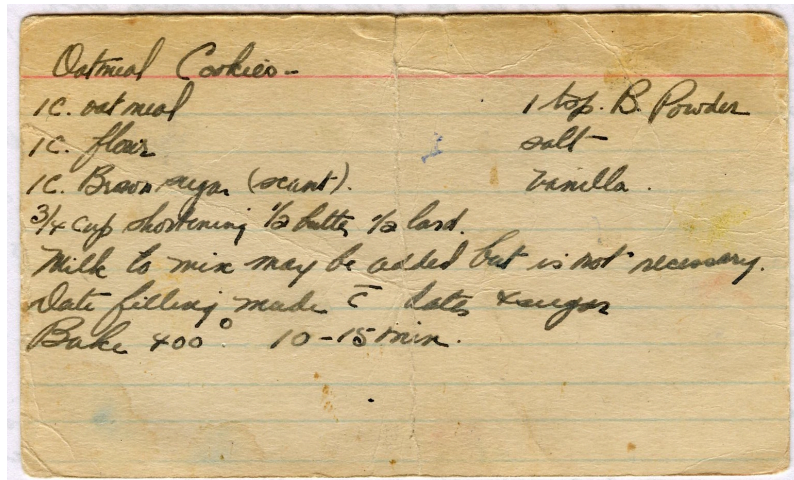 Oatmeal Cookies -
1 C. oatmeal 1 tsp. B. Powder
1 C. flour salt
1 C. Brown sugar (scant). Vanilla.
3/4 cup shortening 1/2 butter 1/2 lard.
Milk to mix may be added but is not necessary.
Date filling made c̄ dates & sugar
Bake 400° 10-15 min.